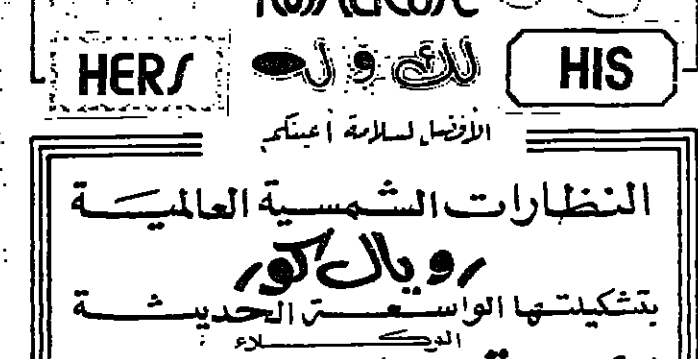 HERS لك و له HIS
الأفضل لسلامة أعينكم
النظارات الشمسية العالمية
رويال كور
بتشكيلتها الواسعة الحديثة
الوكلاء :